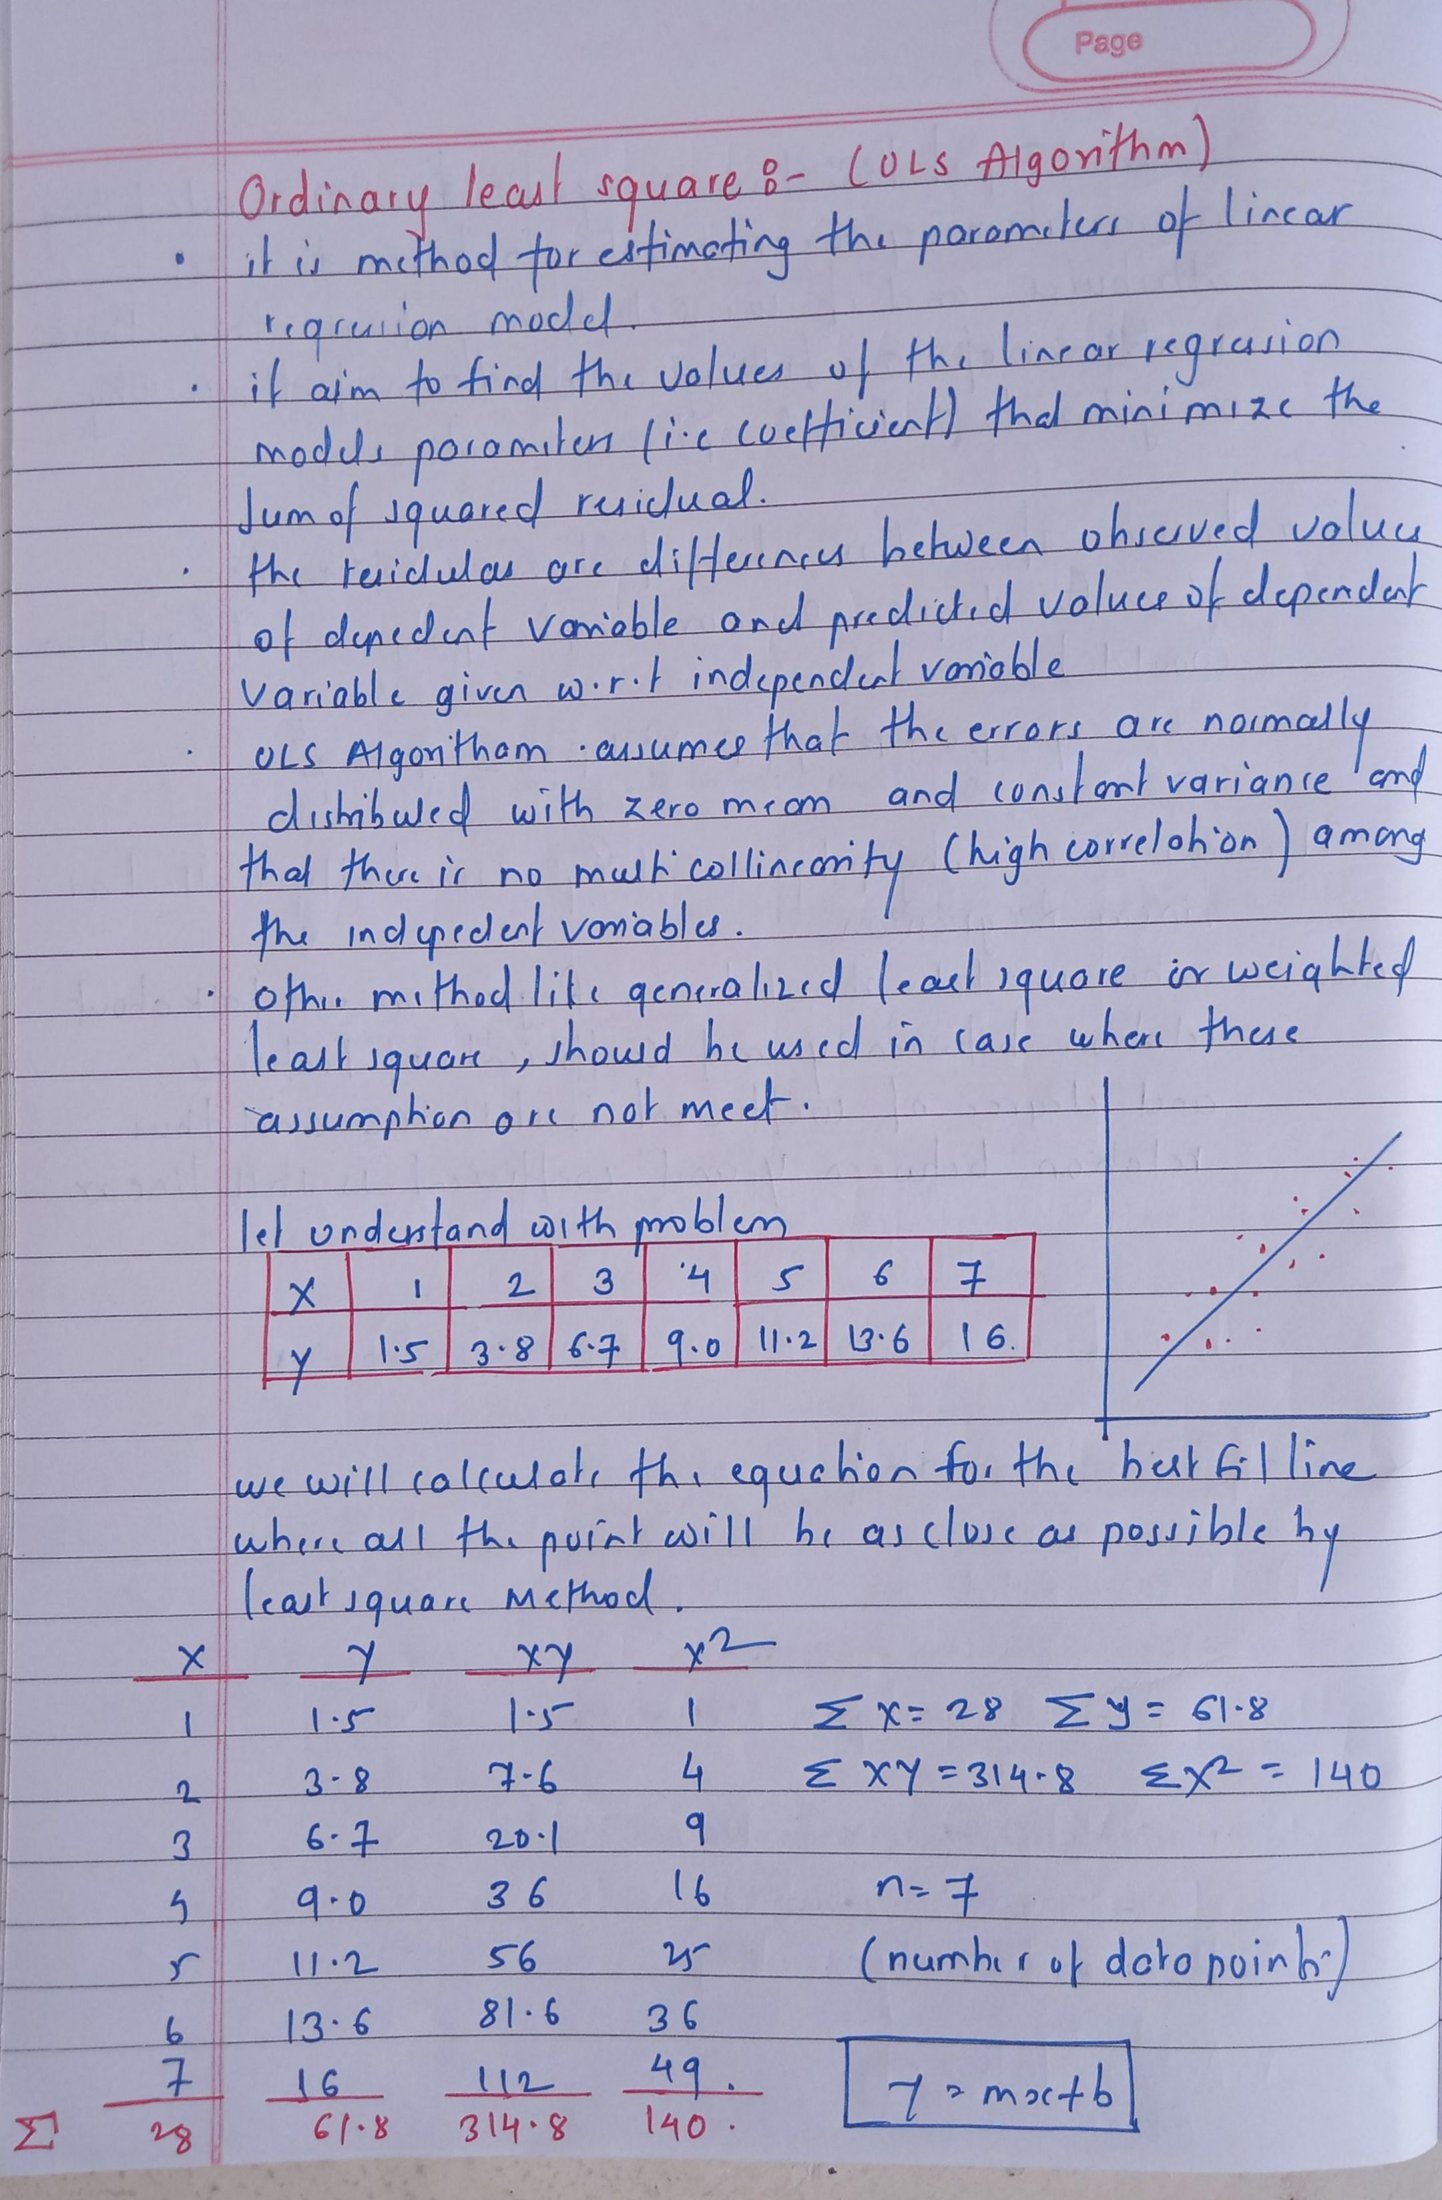 Page
Ordinary least square :- (OLS Algorithm)
• it is method for estimating the parameters of linear
regression model.
• it aim to find the values of the linear regression
models parameters (i.e coefficient) that minimize the
sum of squared residual.
• the residulas are differences between observed values
of depedent variable and predicted values of dependent
variable given w.r.t independent variable
• OLS Algoritham assumes that the errors are normally
distributed with zero mean and constant variance and
that there is no multicollinearity (high correlation) among
the indepedent variables.
• other method like generalized least square or weighted
least square, should be used in case where these
assumption are not meet.
let understand with problem
X 1 2 3 4 5 6 7
Y 1.5 3.8 6.7 9.0 11.2 13.6 16.
we will calculate the equation for the best fit line
where all the point will be as close as possible by
least square Method.
X Y XY X2
1 1.5 1.5 1 Σ X = 28 Σ y = 61.8
2 3.8 7.6 4 Σ XY = 314.8 ΣX2 = 140
3 6.7 20.1 9
4 9.0 36 16 n = 7
5 11.2 56 25 (number of data points)
6 13.6 81.6 36
7 16 112 49. Y = mx+b
Σ 28 61.8 314.8 140.